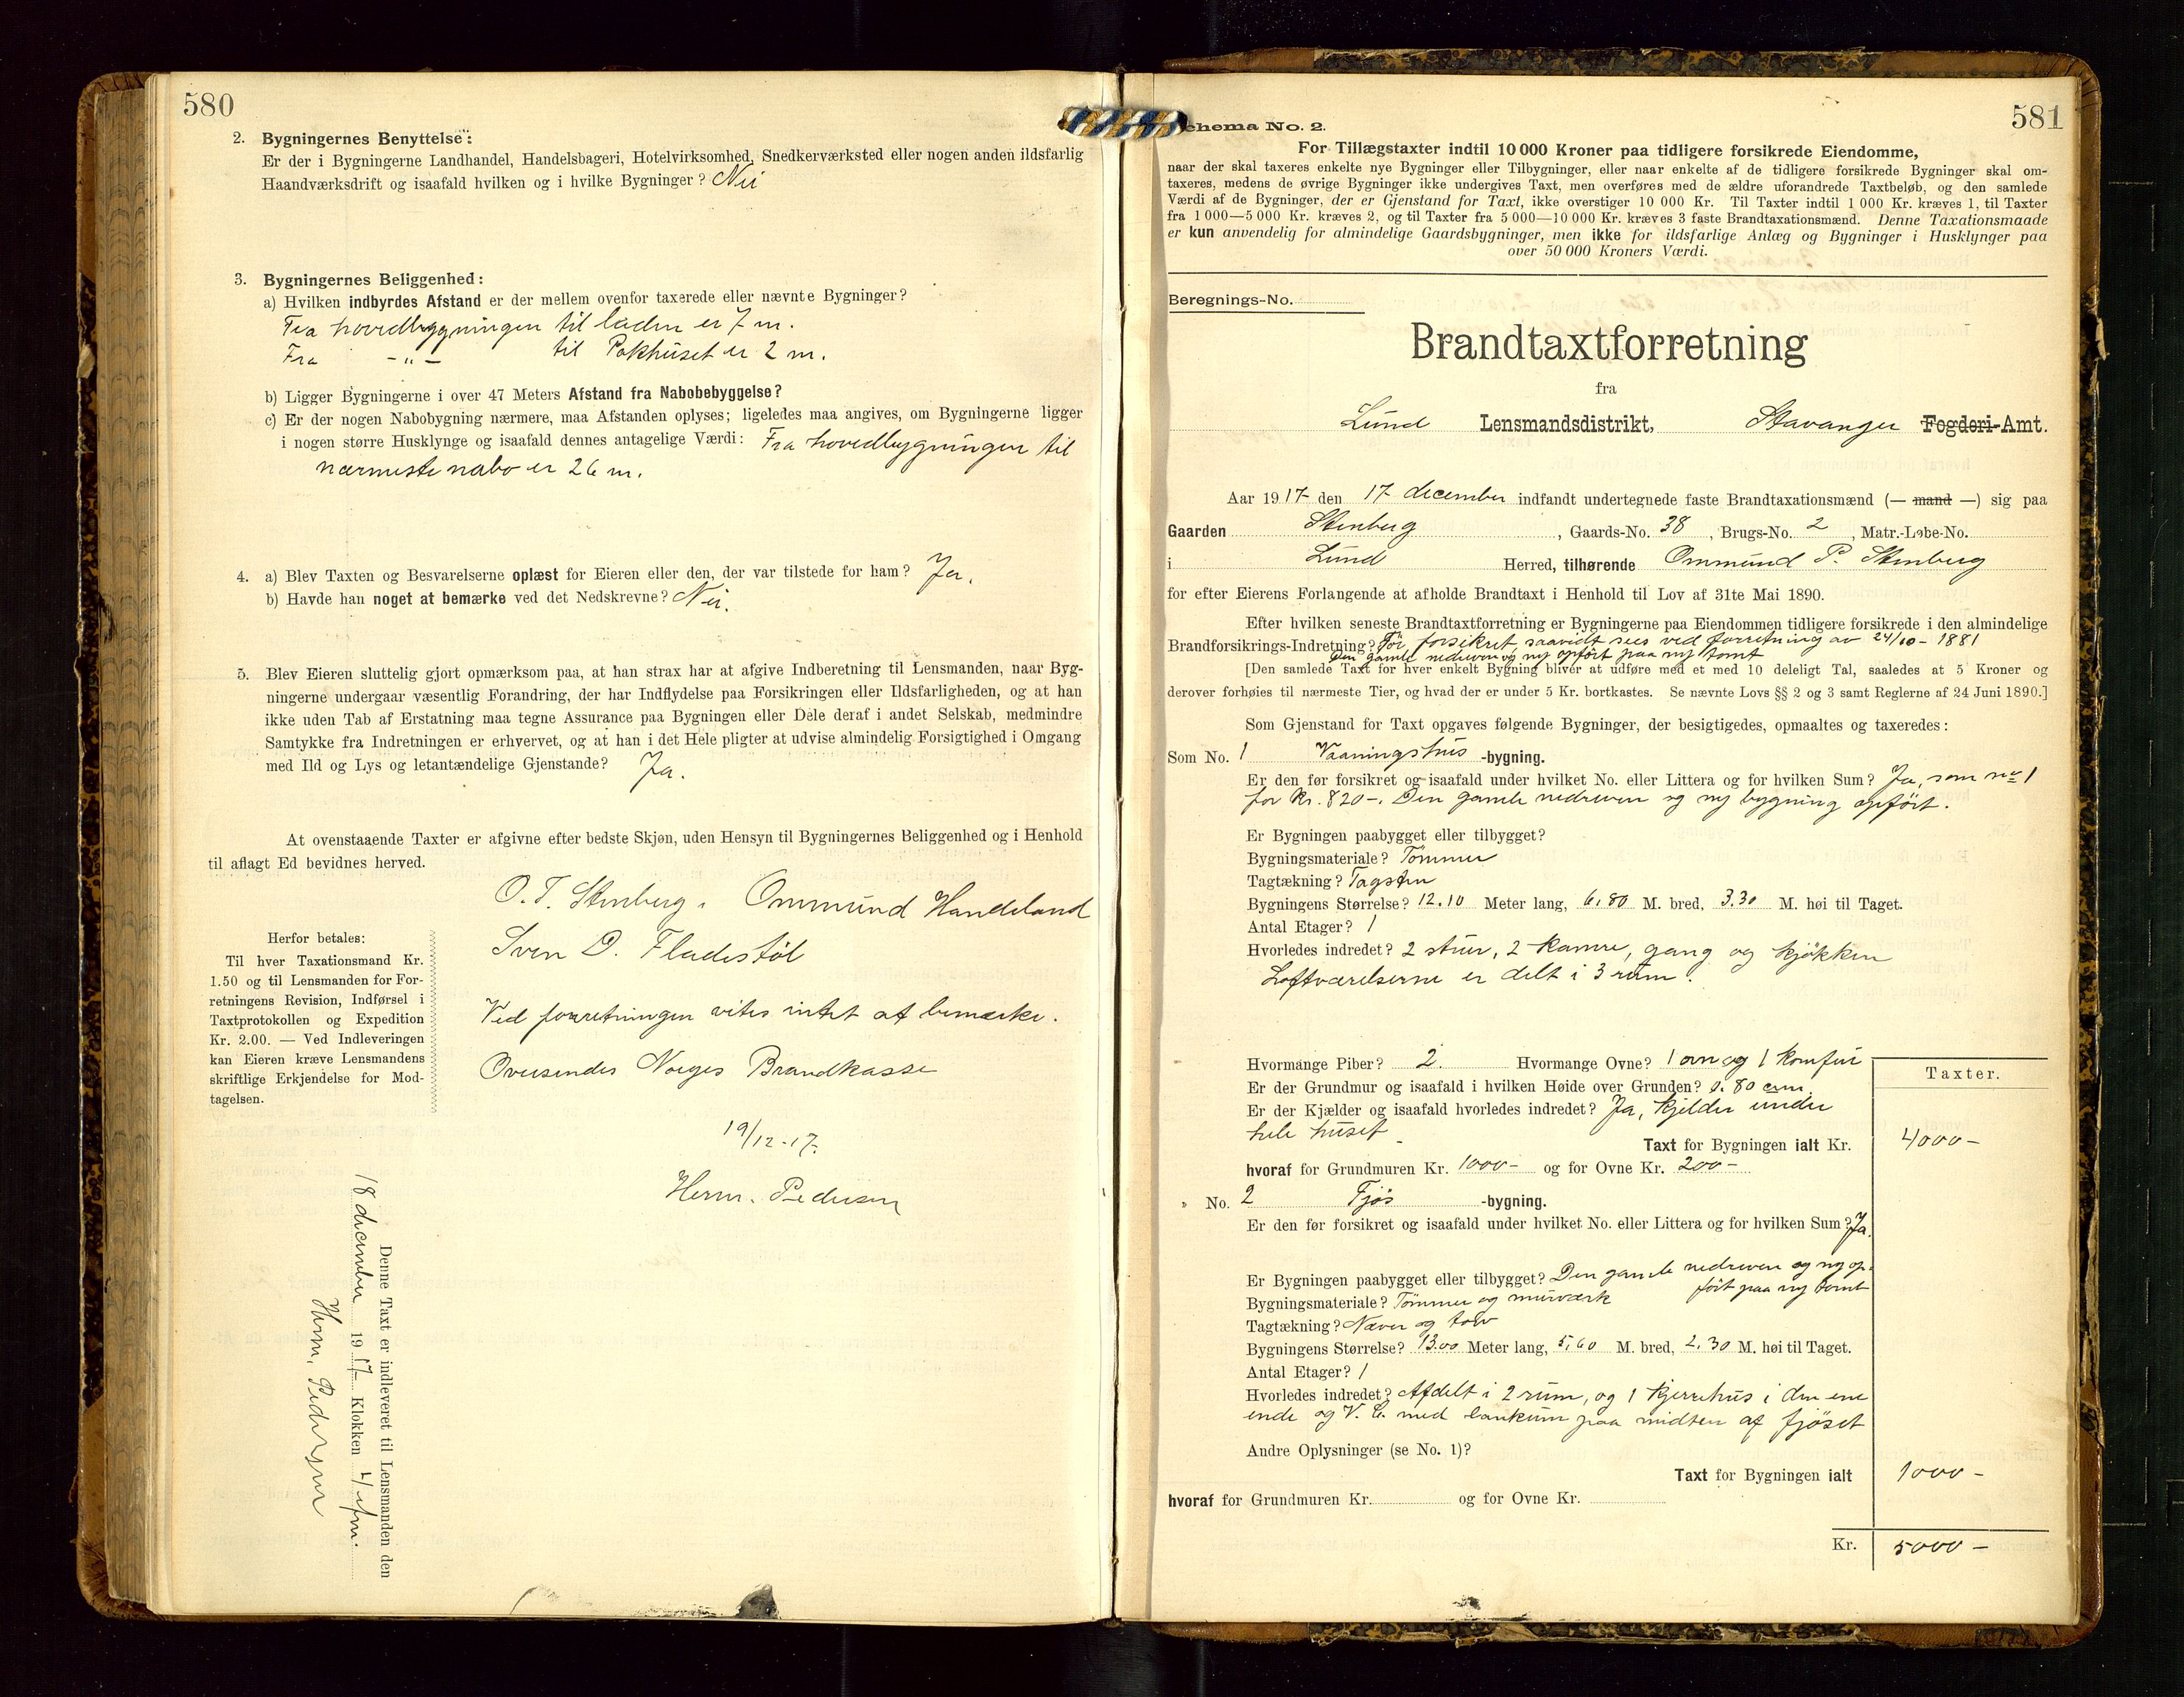 580
2. Bygningernes Benyttelse:
Er der i Bygningerne Landhandel, Handelsbageri, Hotelvirksomhed, Snedkerværksted eller nogen anden ildsfarlig
Haandværksdrift og isaafald hvilken og i hvilke Bygninger? Nei
3. Bygningernes Beliggenhed:
a) Hvilken indbyrdes Afstand er der mellem ovenfor taxerede eller nævnte Bygninger?
Fra hovedbygningen til laden er 7 m.
Fra -"- til Pakhuset er 2 m.
b) Ligger Bygningerne i over 47 Meters Afstand fra Nabobebyggelse?
c) Er der nogen Nabobygning nærmere, maa Afstanden oplyses; ligeledes maa angives, om Bygningerne ligger
i nogen større Husklynge og isaafald dennes antagelige Værdi: Fra hovedbygningen til
nærmeste nabo er 26 m.
4. a) Blev Taxten og Besvarelserne oplæst for Eieren eller den, der var tilstede for ham? Ja.
b) Havde han noget at bemærke ved det Nedskrevne? Nei.
5. Blev Eieren sluttelig gjort opmærksom paa, at han strax har at afgive Indberetning til Lensmanden, naar Byg-
ningerne undergaar væsentlig Forandring, der har Indflydelse paa Forsikringen eller Ildsfarligheden, og at han
ikke uden Tab af Erstatning maa tegne Assurance paa Bygningen eller Dele deraf i andet Selskab, medmindre
Samtykke fra Indretningen er erhvervet, og at han i det Hele pligter at udvise almindelig Forsigtighed i Omgang
med Ild og Lys og letantændelige Gjenstande? Ja.
At ovenstaaende Taxter er afgivne efter bedste Skjøn, uden Hensyn til Bygningernes Beliggenhed og i Henhold
til aflagt Ed bevidnes herved.
O. T. Stenberg. Ommund Handeland
Sven D. Fladestøl
Herfor betales:
Til hver Taxationsmand Kr.
1.50 og til Lensmanden for For-
retningens Revision, Indførsel i
Taxtprotokollen og Expedition
Kr. 2.00. — Ved Indleveringen
kan Eieren kræve Lensmandens
skriftlige Erkjendelse for Mod-
tagelsen.
Ved forretningen vites intet at bemærke.
Oversendes Norges Brandkasse
19/12-17.
Herm. Pedersen
Denne Taxt er indleveret til Lensmanden den
18 december 1917 Klokken 4 efm.
Herm. Pedersen
581
chema No. 2.
For Tillægstaxter indtil 10 000 Kroner paa tidligere forsikrede Eiendomme,
naar der skal taxeres enkelte nye Bygninger eller Tilbygninger, eller naar enkelte af de tidligere forsikrede Bygninger skal om-
taxeres, medens de øvrige Bygninger ikke undergives Taxt, men overføres med de ældre uforandrede Taxtbeløb, og den samlede
Værdi af de Bygninger, der er Gjenstand for Taxt, ikke overstiger 10 000 Kr. Til Taxter indtil 1 000 Kr. kræves 1, til Taxter
fra 1 000—5 000 Kr. kræves 2, og til Taxter fra 5 000—10 000 Kr. kræves 3 faste Brandtaxationsmænd. Denne Taxationsmaade
er kun anvendelig for almindelige Gaardsbygninger, men ikke for ildsfarlige Anlæg og Bygninger i Husklynger paa
over 50 000 Kroners Værdi.
Beregnings-No.
Brandtaxtforretning
fra
Lund Lensmandsdistrikt, Stavanger Fogderi-Amt.
Aar 1917 den 17 december indfandt undertegnede faste Brandtaxationsmænd (— mand —) sig paa
Gaarden Stenberg, Gaards-No. 38, Brugs-No. 2, Matr.-Løbe-No.
i Lund Herred, tilhørende Ommund P. Stenberg
for efter Eierens Forlangende at afholde Brandtaxt i Henhold til Lov af 31te Mai 1890.
Efter hvilken seneste Brandtaxtforretning er Bygningerne paa Eiendommen tidligere forsikrede i den almindelige
Brandforsikrings-Indretning? Før forsikret, saavidt sees ved forretning av 24/10-1881
Den gamle nedreven og ny opført paa ny tomt
[Den samlede Taxt for hver enkelt Bygning bliver at udføre med et med 10 deleligt Tal, saaledes at 5 Kroner og
derover forhøies til nærmeste Tier, og hvad der er under 5 Kr. bortkastes. Se nævnte Lovs §§ 2 og 3 samt Reglerne af 24 Juni 1890.]
Som Gjenstand for Taxt opgaves følgende Bygninger, der besigtigedes, opmaaltes og taxeredes:
Som No. 1 Vaaningshus -bygning.
Er den før forsikret og isaafald under hvilket No. eller Littera og for hvilken Sum? Ja, som no 1
for kr. 820-. Den gamle nedreven og ny bygning opført.
Er Bygningen paabygget eller tilbygget?
Bygningsmateriale? Tømmer
Tagtækning? Tagsten
Bygningens Størrelse? 12.10 Meter lang, 6.80 M. bred, 3.30 M. høi til Taget.
Antal Etager? 1
Hvorledes indredet? 2 stuer, 2 kamre, gang og kjøkken
Loftværelserne er delt i 3 rum.
Hvormange Piber? 2. Hvormange Ovne? 1 ovn og 1 komfur
Er der Grundmur og isaafald i hvilken Høide over Grunden? 0.80 cm
Er der Kjælder og isaafald hvorledes indredet? Ja, kjelder under
hele huset
Taxter.
Taxt for Bygningen ialt Kr. 4000-
hvoraf for Grundmuren Kr. 1000- og for Ovne Kr. 200-
" No. 2 Fjøs -bygning.
Er den før forsikret og isaafald under hvilket No. eller Littera og for hvilken Sum? Ja.
Er Bygningen paabygget eller tilbygget? Den gamle nedreven og ny op-
ført paa ny tomt
Bygningsmateriale? Tømmer og murværk
Tagtækning? Næver og torv
Bygningens Størrelse? 13.00 Meter lang, 5,60 M. bred, 2,30 M. høi til Taget.
Antal Etager? 1
Hvorledes indredet? Afdelt i 2 rum, og 1 kjerrehus i den ene
ende og V. C. med lankum paa midten af fjøset
Andre Oplysninger (se No. 1)?
Taxt for Bygningen ialt 1000-
hvoraf for Grundmuren Kr. og for Ovne Kr.
Kr. 5000-